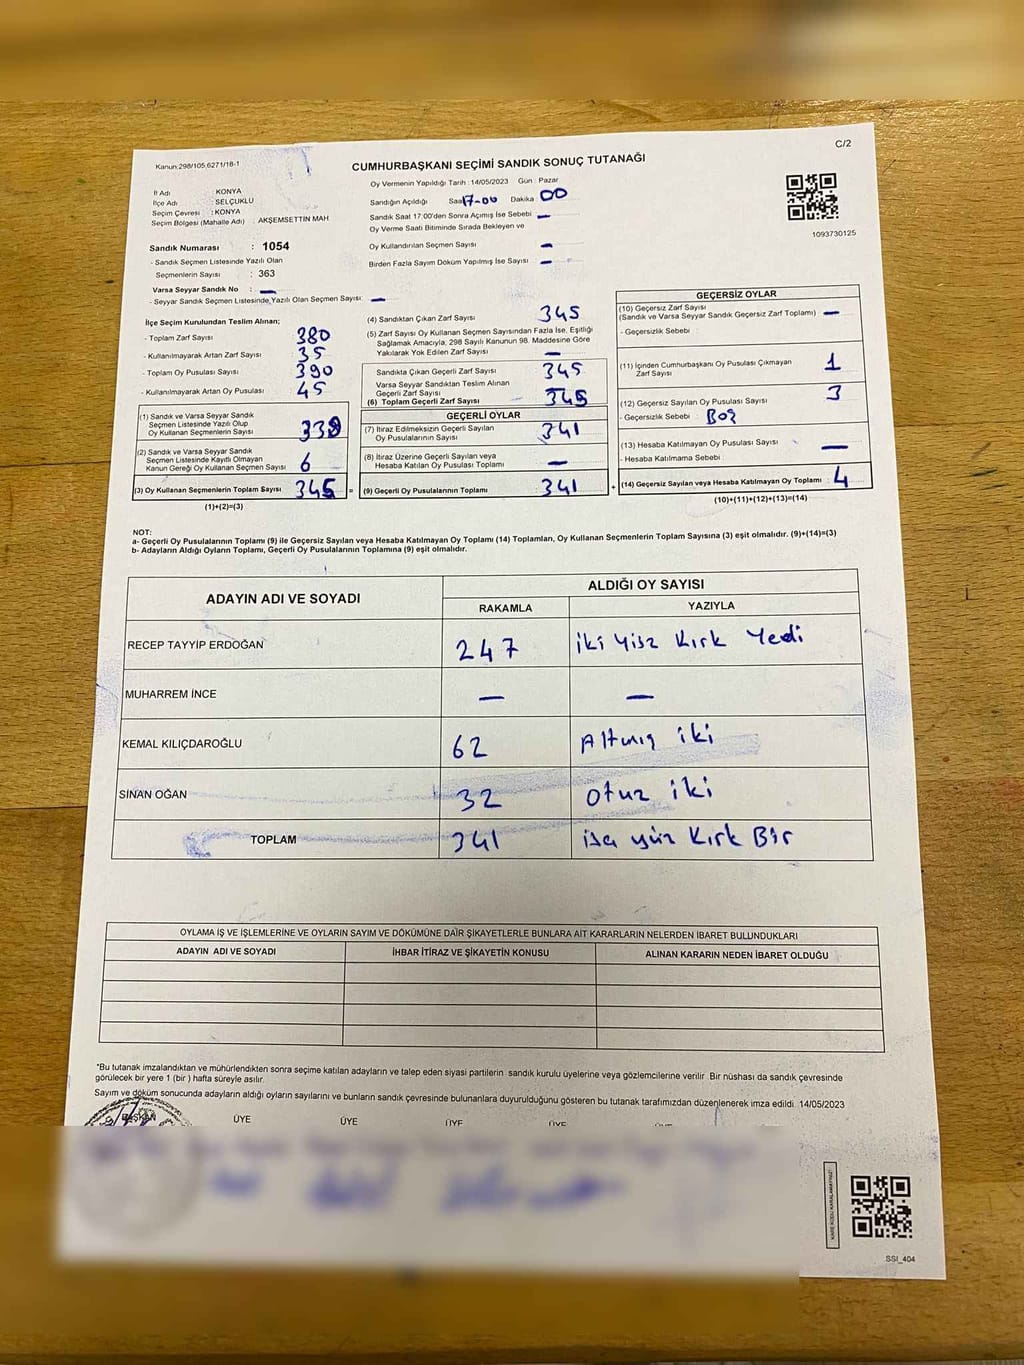 C/2
Kanun:298/105,6271/18-1
CUMHURBAŞKANI SEÇİMİ SANDIK SONUÇ TUTANAĞI
İl Adı : KONYA
İlçe Adı : SELÇUKLU
Seçim Çevresi : KONYA
Seçim Bölgesi (Mahalle Adı) : AKŞEMSETTIN MAH
Sandık Numarası : 1054
- Sandık Seçmen Listesinde Yazılı Olan
Seçmenlerin Sayısı : 363
Varsa Seyyar Sandık No : —
- Seyyar Sandık Seçmen Listesinde Yazılı Olan Seçmen Sayısı: —
Oy Vermenin Yapıldığı Tarih :14/05/2023 Gün : Pazar
Sandığın Açıldığı Saat 17-00 Dakika 00
Sandık Saat 17:00'den Sonra Açılmış İse Sebebi —
Oy Verme Saati Bitiminde Sırada Bekleyen ve
Oy Kullandırılan Seçmen Sayısı —
Birden Fazla Sayım Döküm Yapılmış İse Sayısı —
1093730125
İlçe Seçim Kurulundan Teslim Alınan;
- Toplam Zarf Sayısı 380
- Kullanılmayarak Artan Zarf Sayısı 35
- Toplam Oy Pusulası Sayısı 390
- Kullanılmayarak Artan Oy Pusulası 45
(1) Sandık ve Varsa Seyyar Sandık
Seçmen Listesinde Yazılı Olup
Oy Kullanan Seçmenlerin Sayısı 339
(2) Sandık ve Varsa Seyyar Sandık
Seçmen Listesinde Kayıtlı Olmayan
Kanun Gereği Oy Kullanan Seçmen Sayısı 6
(3) Oy Kullanan Seçmenlerin Toplam Sayısı 345 =
(1)+(2)=(3)
(4) Sandıktan Çıkan Zarf Sayısı 345
(5) Zarf Sayısı Oy Kullanan Seçmen Sayısından Fazla İse, Eşitliği
Sağlamak Amacıyla, 298 Sayılı Kanunun 98. Maddesine Göre
Yakılarak Yok Edilen Zarf Sayısı —
Sandıkta Çıkan Geçerli Zarf Sayısı 345
Varsa Seyyar Sandıktan Teslim Alınan
Geçerli Zarf Sayısı —
(6) Toplam Geçerli Zarf Sayısı 345
GEÇERLİ OYLAR
(7) İtiraz Edilmeksizin Geçerli Sayılan
Oy Pusulalarının Sayısı 341
(8) İtiraz Üzerine Geçerli Sayılan veya
Hesaba Katılan Oy Pusulası Toplamı —
(9) Geçerli Oy Pusulalarının Toplamı 341 +
GEÇERSİZ OYLAR
(10) Geçersiz Zarf Sayısı
(Sandık ve Varsa Seyyar Sandık Geçersiz Zarf Toplamı) —
- Geçersizlik Sebebi :
(11) İçinden Cumhurbaşkanı Oy Pusulası Çıkmayan
Zarf Sayısı 1
(12) Geçersiz Sayılan Oy Pusulası Sayısı 3
- Geçersizlik Sebebi : Boş
(13) Hesaba Katılmayan Oy Pusulası Sayısı —
- Hesaba Katılmama Sebebi :
(14) Geçersiz Sayılan veya Hesaba Katılmayan Oy Toplamı : 4
(10)+(11)+(12)+(13)=(14)
NOT:
a- Geçerli Oy Pusulalarının Toplamı (9) ile Geçersiz Sayılan veya Hesaba Katılmayan Oy Toplamı (14) Toplamları, Oy Kullanan Seçmenlerin Toplam Sayısına (3) eşit olmalıdır. (9)+(14)=(3)
b- Adayların Aldığı Oyların Toplamı, Geçerli Oy Pusulalarının Toplamına (9) eşit olmalıdır.
ADAYIN ADI VE SOYADI ALDIĞI OY SAYISI
RAKAMLA YAZIYLA
RECEP TAYYİP ERDOĞAN 247 iki Yüz Kırk Yedi
MUHARREM İNCE — —
KEMAL KILIÇDAROĞLU 62 Altmış iki
SİNAN OĞAN 32 Otuz iki
TOPLAM 341 yüz Kırk Bir
OYLAMA İŞ VE İŞLEMLERİNE VE OYLARIN SAYIM VE DÖKÜMÜNE DAİR ŞİKAYETLERLE BUNLARA AİT KARARLARIN NELERDEN İBARET BULUNDUKLARI
ADAYIN ADI VE SOYADI İHBAR İTİRAZ VE ŞİKAYETİN KONUSU ALINAN KARARIN NEDEN İBARET OLDUĞU
*Bu tutanak imzalandıktan ve mühürlendikten sonra seçime katılan adayların ve talep eden siyasi partilerin sandık kurulu üyelerine veya gözlemcilerine verilir. Bir nüshası da sandık çevresinde
görülecek bir yere 1 (bir) hafta süreyle asılır.
Sayım ve döküm sonucunda adayların aldığı oyların sayılarını ve bunların sandık çevresinde bulunanlara duyurulduğunu gösteren bu tutanak tarafımızdan düzenlenerek imza edildi. 14/05/2023
BAŞKAN ÜYE ÜYE ÜYE ÜYE
SSI_404